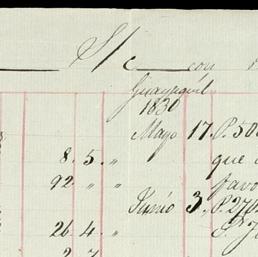 S/c con
Guayaquil
1830
Mayo 17. P. 500
8. 5. " que
92 " " favo
Junio 3. P. 270
26. 4. "
2 7